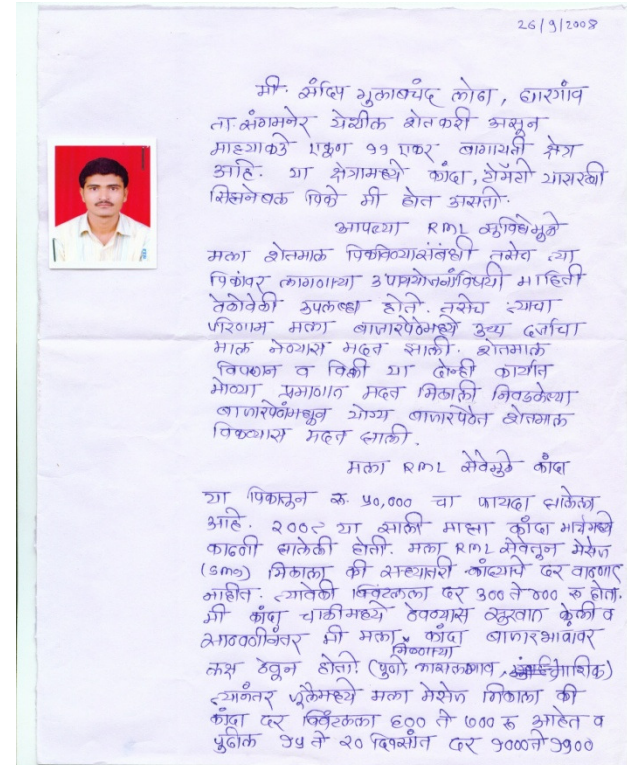 26/9/2008
मी. संदिप गुलाबचंद लोढा, घारगांव
ता. संगमनेर येथील शेतकरी असून
माझ्याकडे एकून ११ एकर बागायती क्षेत्र
आहे. या क्षेत्रामध्ये कांदा, टोमॅटो यासारखी
पिके मी घेत असतो.
आपल्या RML सुविधेमुळे
मला शेतमाल पिकविण्यासंबंधी तसेच त्या
पिकांवर लागणाऱ्या उपाययोजनांविषयी माहिती
वेळोवेळी उपलब्ध होते. तसेच त्याचा
परिणाम मला बाजारपेठेमध्ये उच्च दर्जाचा
माल नेण्यास मदत झाली. शेतमाल
विपणन व विक्री या दोन्ही कार्यात
मोठ्या प्रमाणात मदत मिळाली निवडलेल्या
बाजारपेठेमधून योग्य बाजारपेठेत शेतमाल
विकण्यास मदत झाली.
मला RML सेवेमुळे कांदा
या पिकातून रू. ५०,००० चा फायदा झालेला
आहे. २००८ या साली माझा कांदा मार्चमध्ये
काढणी झालेली होती. मला RML सेवेतून मेसेज
(sms) मिळाला की सध्यातरी कांद्याचे दर वाढणार
नाहीत. त्यावेळी क्विंटलला दर ३०० ते ४०० रू होता.
मी कांदा चाळीमध्ये ठेवण्यास सुरवात केली व
साठवणीनंतर मी मला मिळणाऱ्या कांदा बाजारभावावर
लक्ष ठेवून होतो. (पुणे, नाशिक)
त्यानंतर जुलैमध्ये मला मेसेज मिळाला की
कांदा दर क्विंटलला ६०० ते ७०० रू आहेत व
पुढील १५ ते २० दिवसांत दर १००० ते ११००